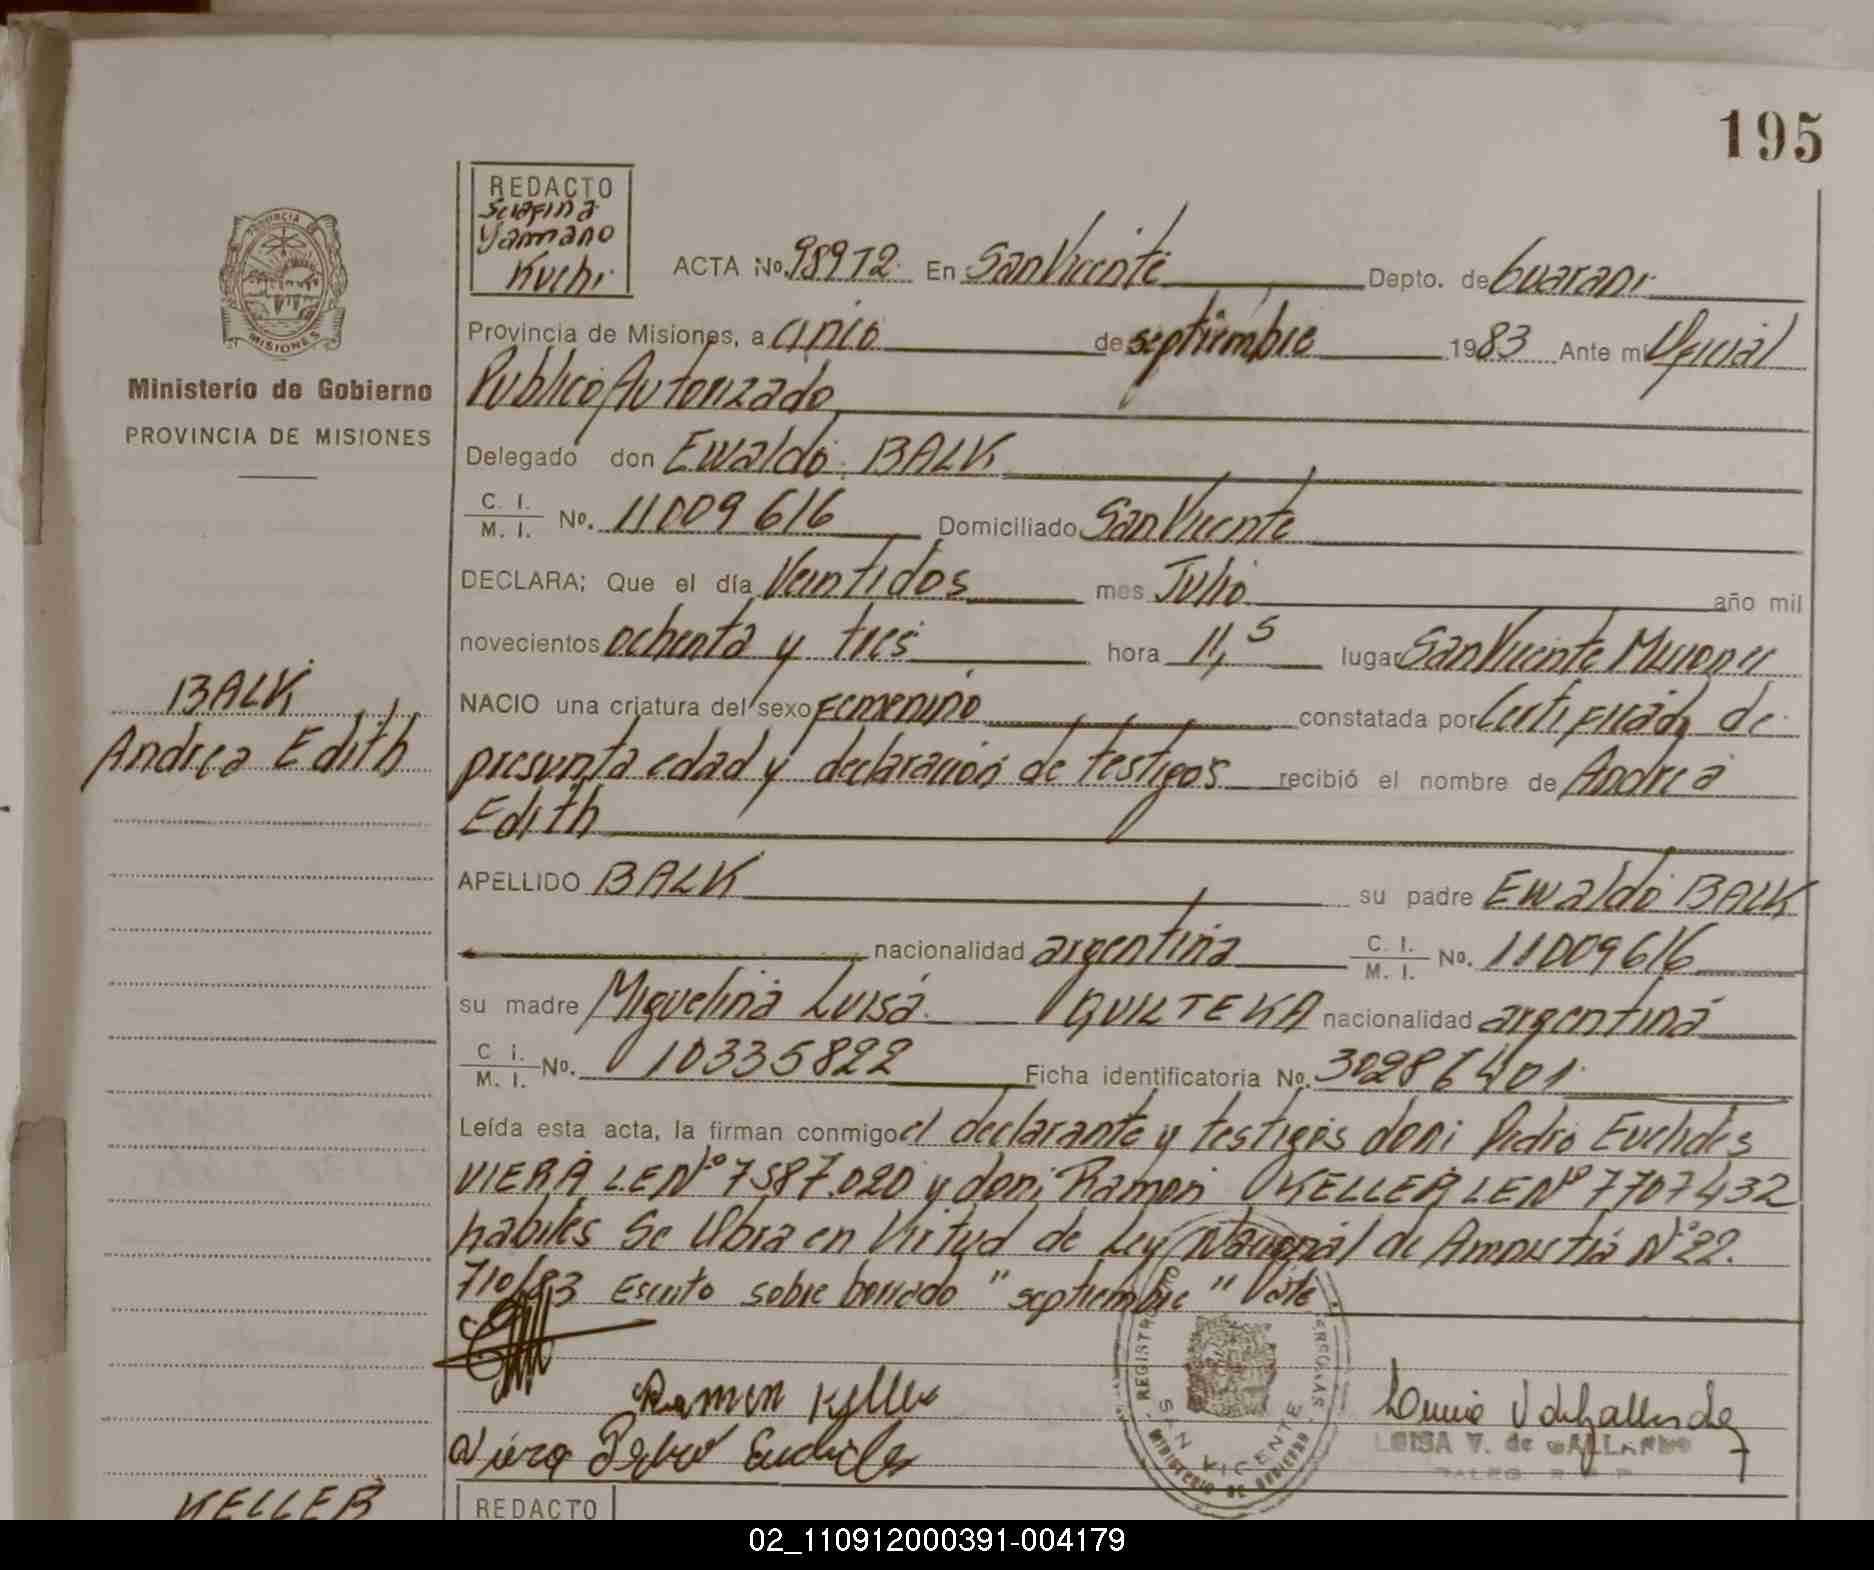 195
REDACTO
Yamano
Kuchi
PROVINCIA
MISIONES
Ministerio de Gobierno
PROVINCIA DE MISIONES
ACTA No. 98972 En San Vicente Depto. de Guarani
Provincia de Misiones, a cinco de septiembre 1983 Ante mi Oficial
Publico Autorizado
Delegado don Ewaldo BALK
C. I. / M. I. No. 11009616 Domiciliado San Vicente
DECLARA; Que el día Veintidos mes Julio año mil
novecientos ochenta y tres hora 11,5 lugar San Vicente Misiones
NACIO una criatura del sexo femenino constatada por Certificado de
presunta edad y declaración de testigos recibió el nombre de Andrea
Edith
BALK
Andrea Edith
APELLIDO BALK su padre Ewaldo BALK
nacionalidad argentina C. I. / M. I. No. 11009616
su madre Miguelina Luisa nacionalidad argentina
C. I. / M. I. No. 10335822 Ficha identificatoria No. 30286401
Leída esta acta, la firman conmigo el declarante y testigos don; Pedro Euclides
VIERA LE Nº 7587.020 y don; Ramon KELLER LE Nº 7707432
habiles Se labra en Virtud de Ley Nacional de Amnistia Nº 22.
710/83 Escrito sobre borrado "septiembre" Vale
Ramon Keller
Viera Pedro Euclides
REGISTRO
SAN VICENTE
MINISTERIO DE GOBIERNO
LUISA V. de GALLARDO
KELLER
REDACTO
02_110912000391-004179